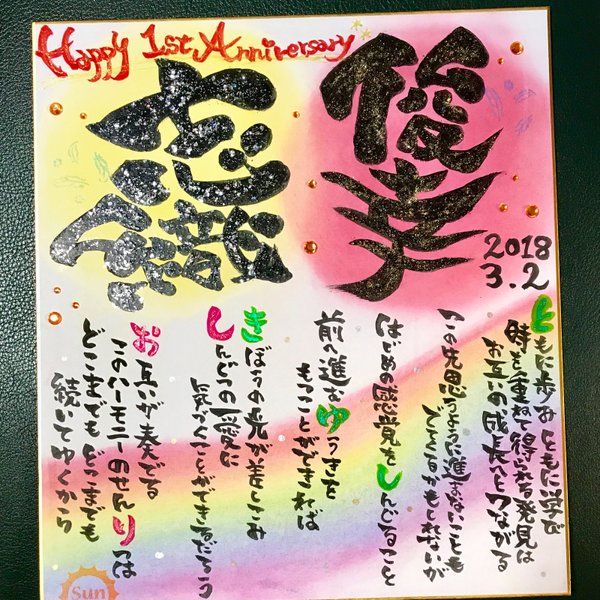 Happy 1st Anniversary
俊幸
2018
3.2
ともに歩み ともに学び
時を重ねて得られる発見は
お互いの成長へとつながる
この先思うように進まないことも
でてくるかもしれないが
はじめの感覚をしんじること
前へ進むゆうきを
もつことができれば
きぼうの光が差しこみ
しんじつの愛に
気づくことができるだろう
お互いが奏でる
このハーモニーのせんりつは
どこまでもどこまでも
続いてゆくから
Sun